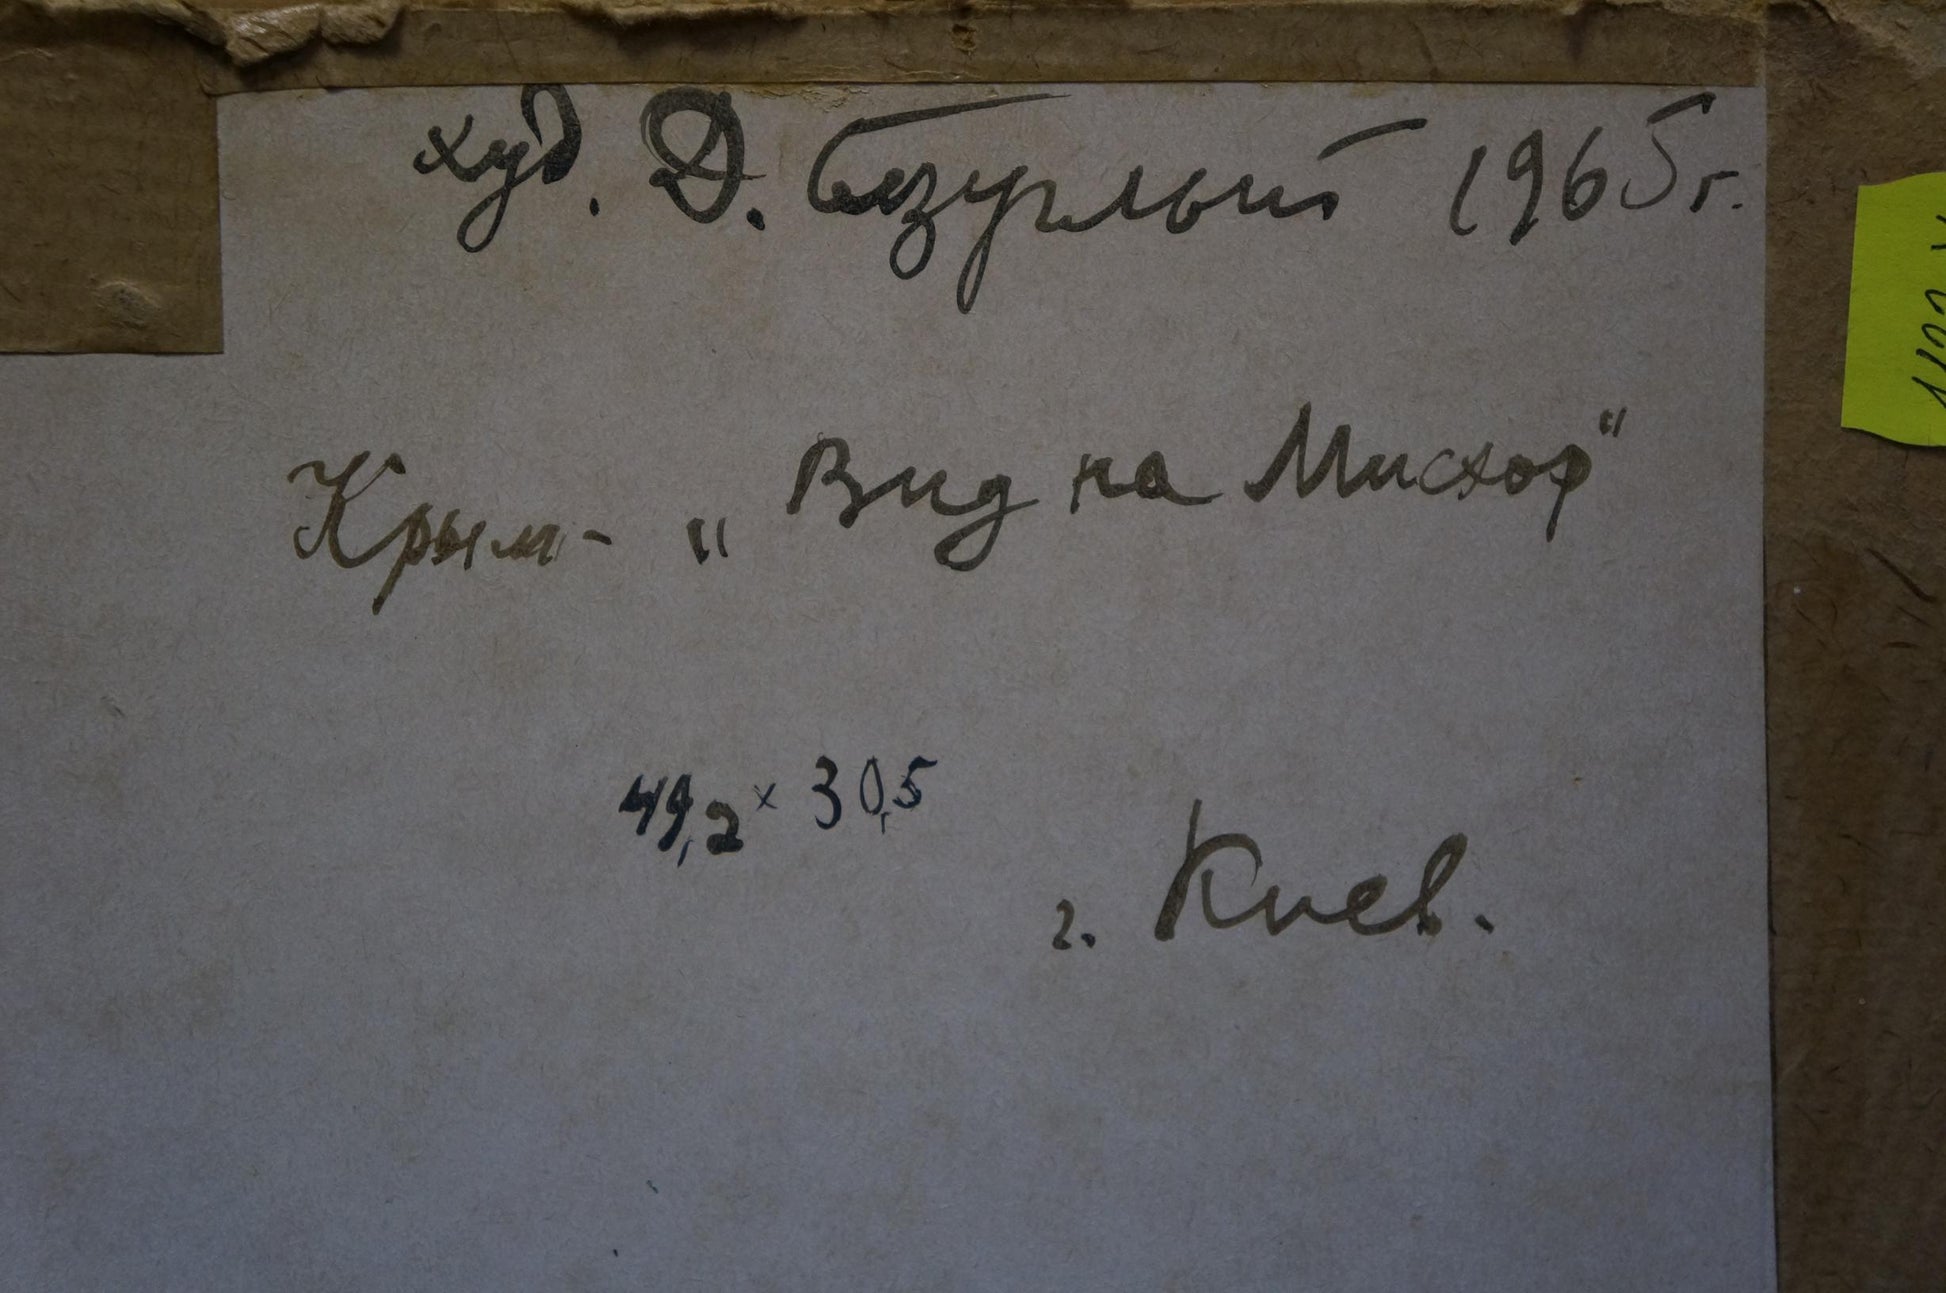 худ. Д. Безуглый 1965 г.
Крым - „Вид на Мисхор“
49,2 x 30,5
г. Киев.